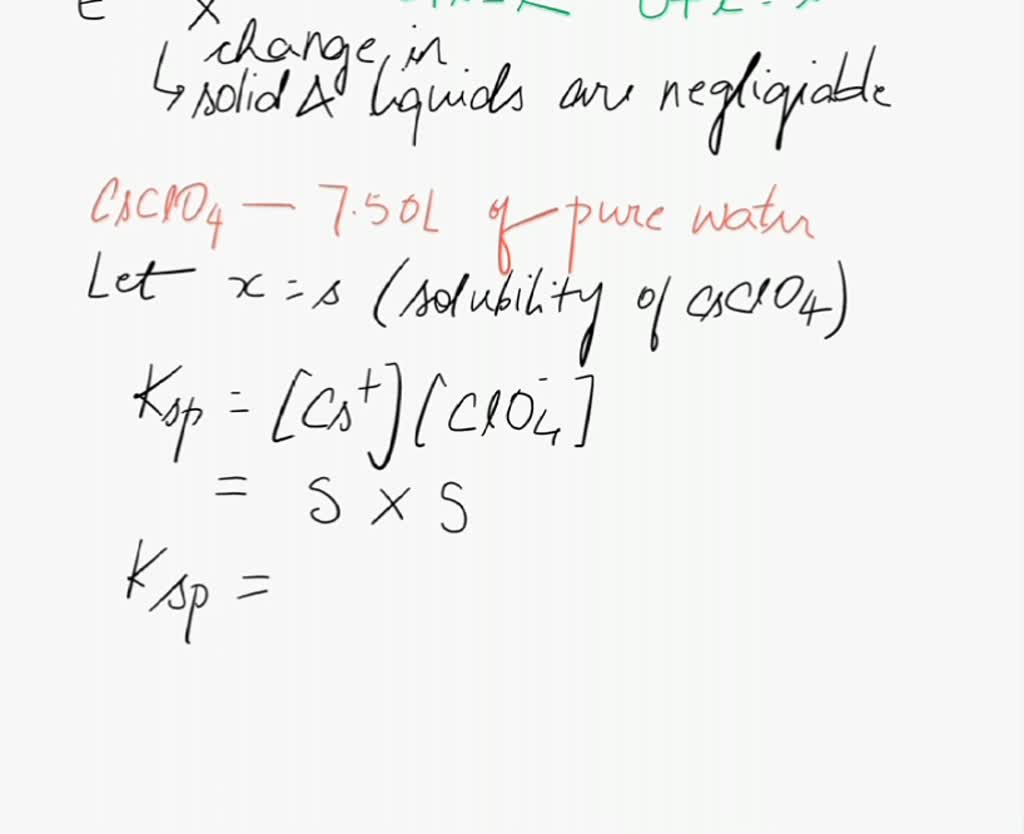 E x
change in
↳ solid & liquids are negligiable
CsClO4 — 7.50L of pure water
Let x = s (solubility of CsClO4)
Ksp = [Cs+][ClO4-]
= S × S
Ksp =